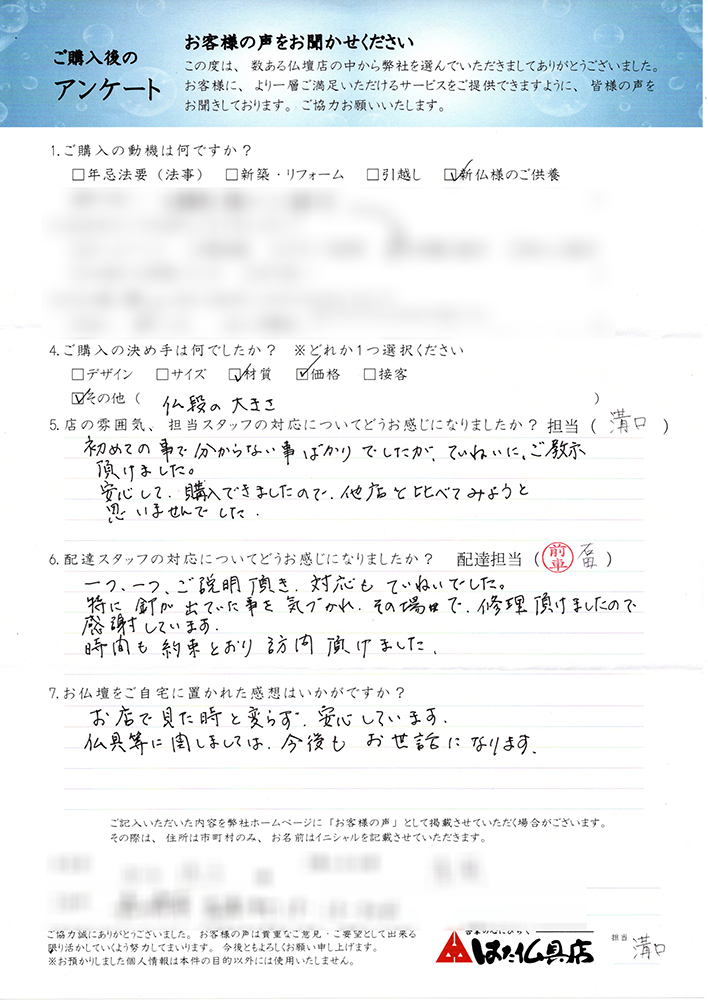 ご購入後の
アンケート
お客様の声をお聞かせください
この度は、数ある仏壇店の中から弊社を選んでいただきましてありがとうございました。
お客様に、より一層ご満足いただけるサービスをご提供できますように、皆様の声を
お聞きしております。ご協力お願いいたします。
1.ご購入の動機は何ですか?
□年忌法要(法事) □新築・リフォーム □引越し ☑新仏様のご供養
4.ご購入の決め手は何でしたか? ※どれか1つ選択ください
□デザイン □サイズ ☑材質 ☑価格 □接客
☑その他( 仏段の大きさ )
5.店の雰囲気、担当スタッフの対応についてどうお感じになりましたか? 担当( 溝口 )
初めての事で分からない事ばかりでしたが、ていねいに、ご教示
頂けました。
安心して、購入できましたので、他店と比べてみようと
思いませんでした.
6.配達スタッフの対応についてどうお感じになりましたか? 配達担当( 前車 )
一つ、一つ、ご説明頂き、対応もていねいでした。
特に釘が出ていた事を気づかれ、その場中で、修理頂けましたので
感謝しています.
時間も約束どおり訪問頂けました.
7.お仏壇をご自宅に置かれた感想はいかがですか?
お店で見た時と変らず、安心しています.
仏具等に関しましては、今後もお世話になります.
ご記入いただいた内容を弊社ホームページに「お客様の声」として掲載させていただく場合がございます。
その際は、住所は市町村のみ、お名前はイニシャルを記載させていただきます。
ご協力誠にありがとうございました。お客様の声は貴重なご意見・ご要望として出来る
限り活かしていくよう努力してまいります。今後ともよろしくお願い申し上げます。
※お預かりしました個人情報は本件の目的以外には使用いたしません。
はた仏具店
担当 溝口